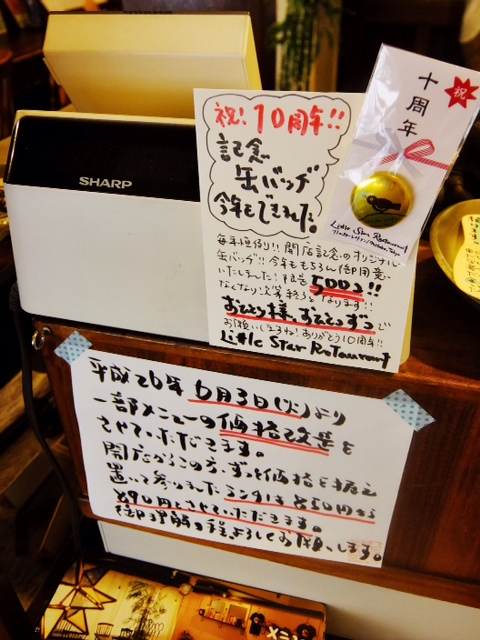 SHARP
祝!10周年!!
記念
缶バッヂ
今年もできました。
毎年恒例!!開店記念のオリジナル
缶バッヂ!!今年ももちろん御用意
いたしました!限定500コ!!
なくなり次第終了となります!!
おひとり様、おひとつずつで
お願いしますね!ありがとう10周年!!
Little Star Restaurant
祝
十周年
Little Star Restaurant
平成26年6月3日(火)より
一部メニューの価格改正を
させていただきます。
開店からこの方、ずっと価格を据え
置いて参りましたランチも¥850から
¥890とさせていただきます。
御理解の程よろしくお願いします。
メニ